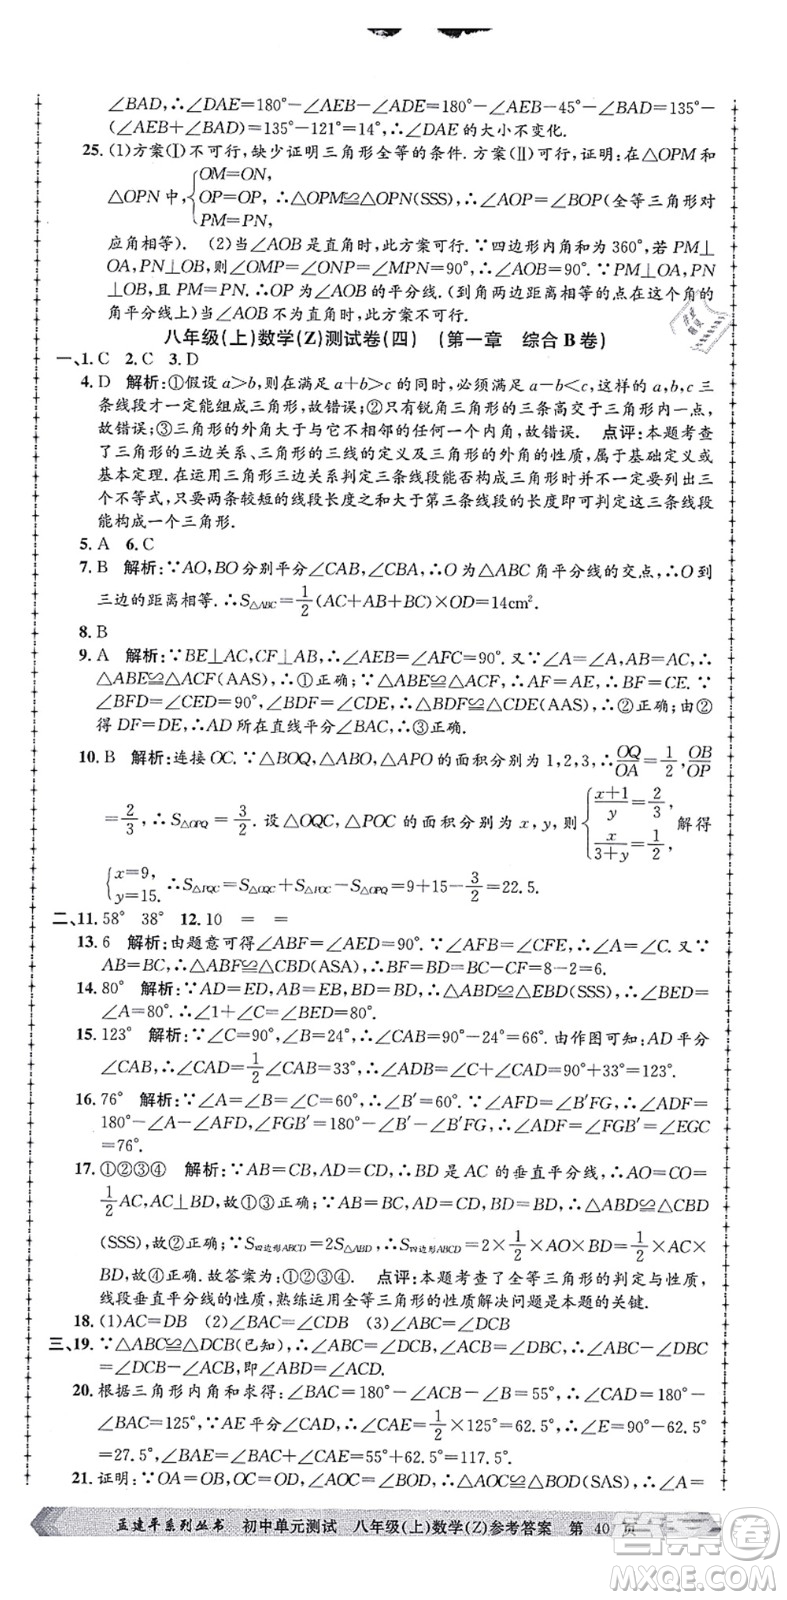 ∠BAD,∴∠DAE=180°-∠AEB-∠ADE=180°-∠AEB-45°-∠BAD=135°-
(∠AEB+∠BAD)=135°-121°=14°,∴∠DAE的大小不变化.
25. (1)方案(Ⅰ)不可行,缺少证明三角形全等的条件. 方案(Ⅱ)可行,证明:在△OPM和
△OPN中, { OM=ON, OP=OP, PM=PN, ∴△OPM≌△OPN(SSS),∴∠AOP=∠BOP(全等三角形对
应角相等). (2)当∠AOB是直角时,此方案可行.∵四边形内角和为360°,若PM⊥
OA,PN⊥OB,则∠OMP=∠ONP=∠MPN=90°,∴∠AOB=90°.∵PM⊥OA,PN⊥
OB,且PM=PN,∴OP为∠AOB的平分线. (到角两边距离相等的点在角平分线上)当
∠AOB不为直角时,此方案不可行.
八年级(上)数学(Z)测试卷(四) (第一章 综合B卷)
一、1. C 2. C 3. D
4. D 解析:①假设a>b,则在满足a+b>c的同时,必须满足a-b<c,这样的a,b,c三
条线段才一定能组成三角形,故错误;②只有锐角三角形的三条高交于三角形内一点,
故错误;③三角形的外角大于与它不相邻的任何一个内角,故错误. 点评:本题考查
了三角形的三边关系、三角形的三线的定义及三角形的外角的性质,属于基础定义或
基本定理. 在运用三角形三边关系判定三条线段能否构成三角形时并不一定要列出三
个不等式,只要两条较短的线段长度之和大于第三条线段的长度即可判定这三条线段
能构成一个三角形.
5. A 6. C
7. B 解析:∵AO,BO分别平分∠CAB,∠CBA,∴O为△ABC角平分线的交点,∴O到
三边的距离相等.∴S△ABC=1/2(AC+AB+BC)×OD=14cm².
8. B
9. A 解析:∵BE⊥AC,CF⊥AB,∴∠AEB=∠AFC=90°. 又∵∠A=∠A,AB=AC,∴
△ABE≌△ACF(AAS),∴①正确;∵△ABE≌△ACF,∴AF=AE,∴BF=CE.∵
∠BFD=∠CED=90°,∠BDF=∠CDE,∴△BDF≌△CDE(AAS),∴②正确;由②可
得DF=DE,∴AD所在直线平分∠BAC,∴③正确.
10. B 解析:连接OC.∵△BOQ,△ABO,△APO的面积分别为1,2,3,∴OQ/OA=1/2,OB/OP
=2/3,∴S△OPQ=3/2. 设△OQC,△POC的面积分别为x,y,则 { (x+1)/y=2/3, x/(3+y)=1/2, 解得
{ x=9, y=15. ∴S△PQC=S△OQC+S△POC-S△OPQ=9+15-3/2=22.5.
二、11. 58° 38° 12. 10 = =
13. 6 解析:由题意可得∠ABF=∠AED=90°.∵∠AFB=∠CFE,∴∠A=∠C. 又∵
AB=BC,∴△ABF≌△CBD(ASA),∴BF=BD=BC-CD=8-2=6.
14. 80° 解析:∵AD=ED,AB=EB,BD=BD,∴△ABD≌△EBD(SSS),∴∠BED=
∠A=80°.∴∠1+∠C=∠BED=80°.
15. 123° 解析:∵∠C=90°,∠B=24°,∴∠CAB=90°-24°=66°. 由作图可知:AD平分
∠CAB,∴∠CAD=1/2∠CAB=33°,∴∠ADB=∠C+∠CAD=90°+33°=123°.
16. 76° 解析:∵∠A=∠B=∠C=60°,∴∠B′=60°.∵∠AFD=∠B′FG,∴∠ADF=
180°-∠A-∠AFD,∠FGB′=180°-∠B′-∠B′FG,∴∠ADF=∠FGB′=∠EGC
=76°.
17. ①②③④ 解析:∵AB=CB,AD=CD,∴BD是AC的垂直平分线,∴AO=CO=
1/2AC,AC⊥BD,故①③正确;∵AB=CB,AD=CD,BD=BD,∴△ABD≌△CBD
(SSS),故②正确;∵S四边形ABCD=2S△ABD,∴S四边形ABCD=2×1/2×BD×1/2AC=1/2AC×
BD,故④正确. 故答案为:①②③④. 点评:本题考查了全等三角形的判定与性质,
线段垂直平分线的性质,熟练运用全等三角形的性质解决问题是本题的关键.
18. (1)AC=DB (2)∠ABC=∠CDB (3)∠ABC=∠DCB
三、19. ∵△ABC≌△DCB(已知),∴∠ABC=∠DCB,∠ACB=∠DBC,∴∠ABC-
∠DBC=∠DCB-∠ACB,即∠ABD=∠ACD.
20. 根据三角形内角和求得:∠BAC=180°-∠ACB-∠B=55°,∴∠CAD=180°-
∠BAC=125°,∵AE平分∠CAD,∴∠CAE=1/2×125°=62.5°,∴∠E=90°-62.5°
=27.5°,∠BAE=55°+62.5°=117.5°.
21. 证明:∵OA=OB,OC=OD,∠AOC=∠BOD,∴△AOC≌△BOD(SAS),∴∠A=
孟建平系列丛书 初中单元测试 八年级(上)数学(Z)参考答案 第 40 页
答案圈
MXQE.COM